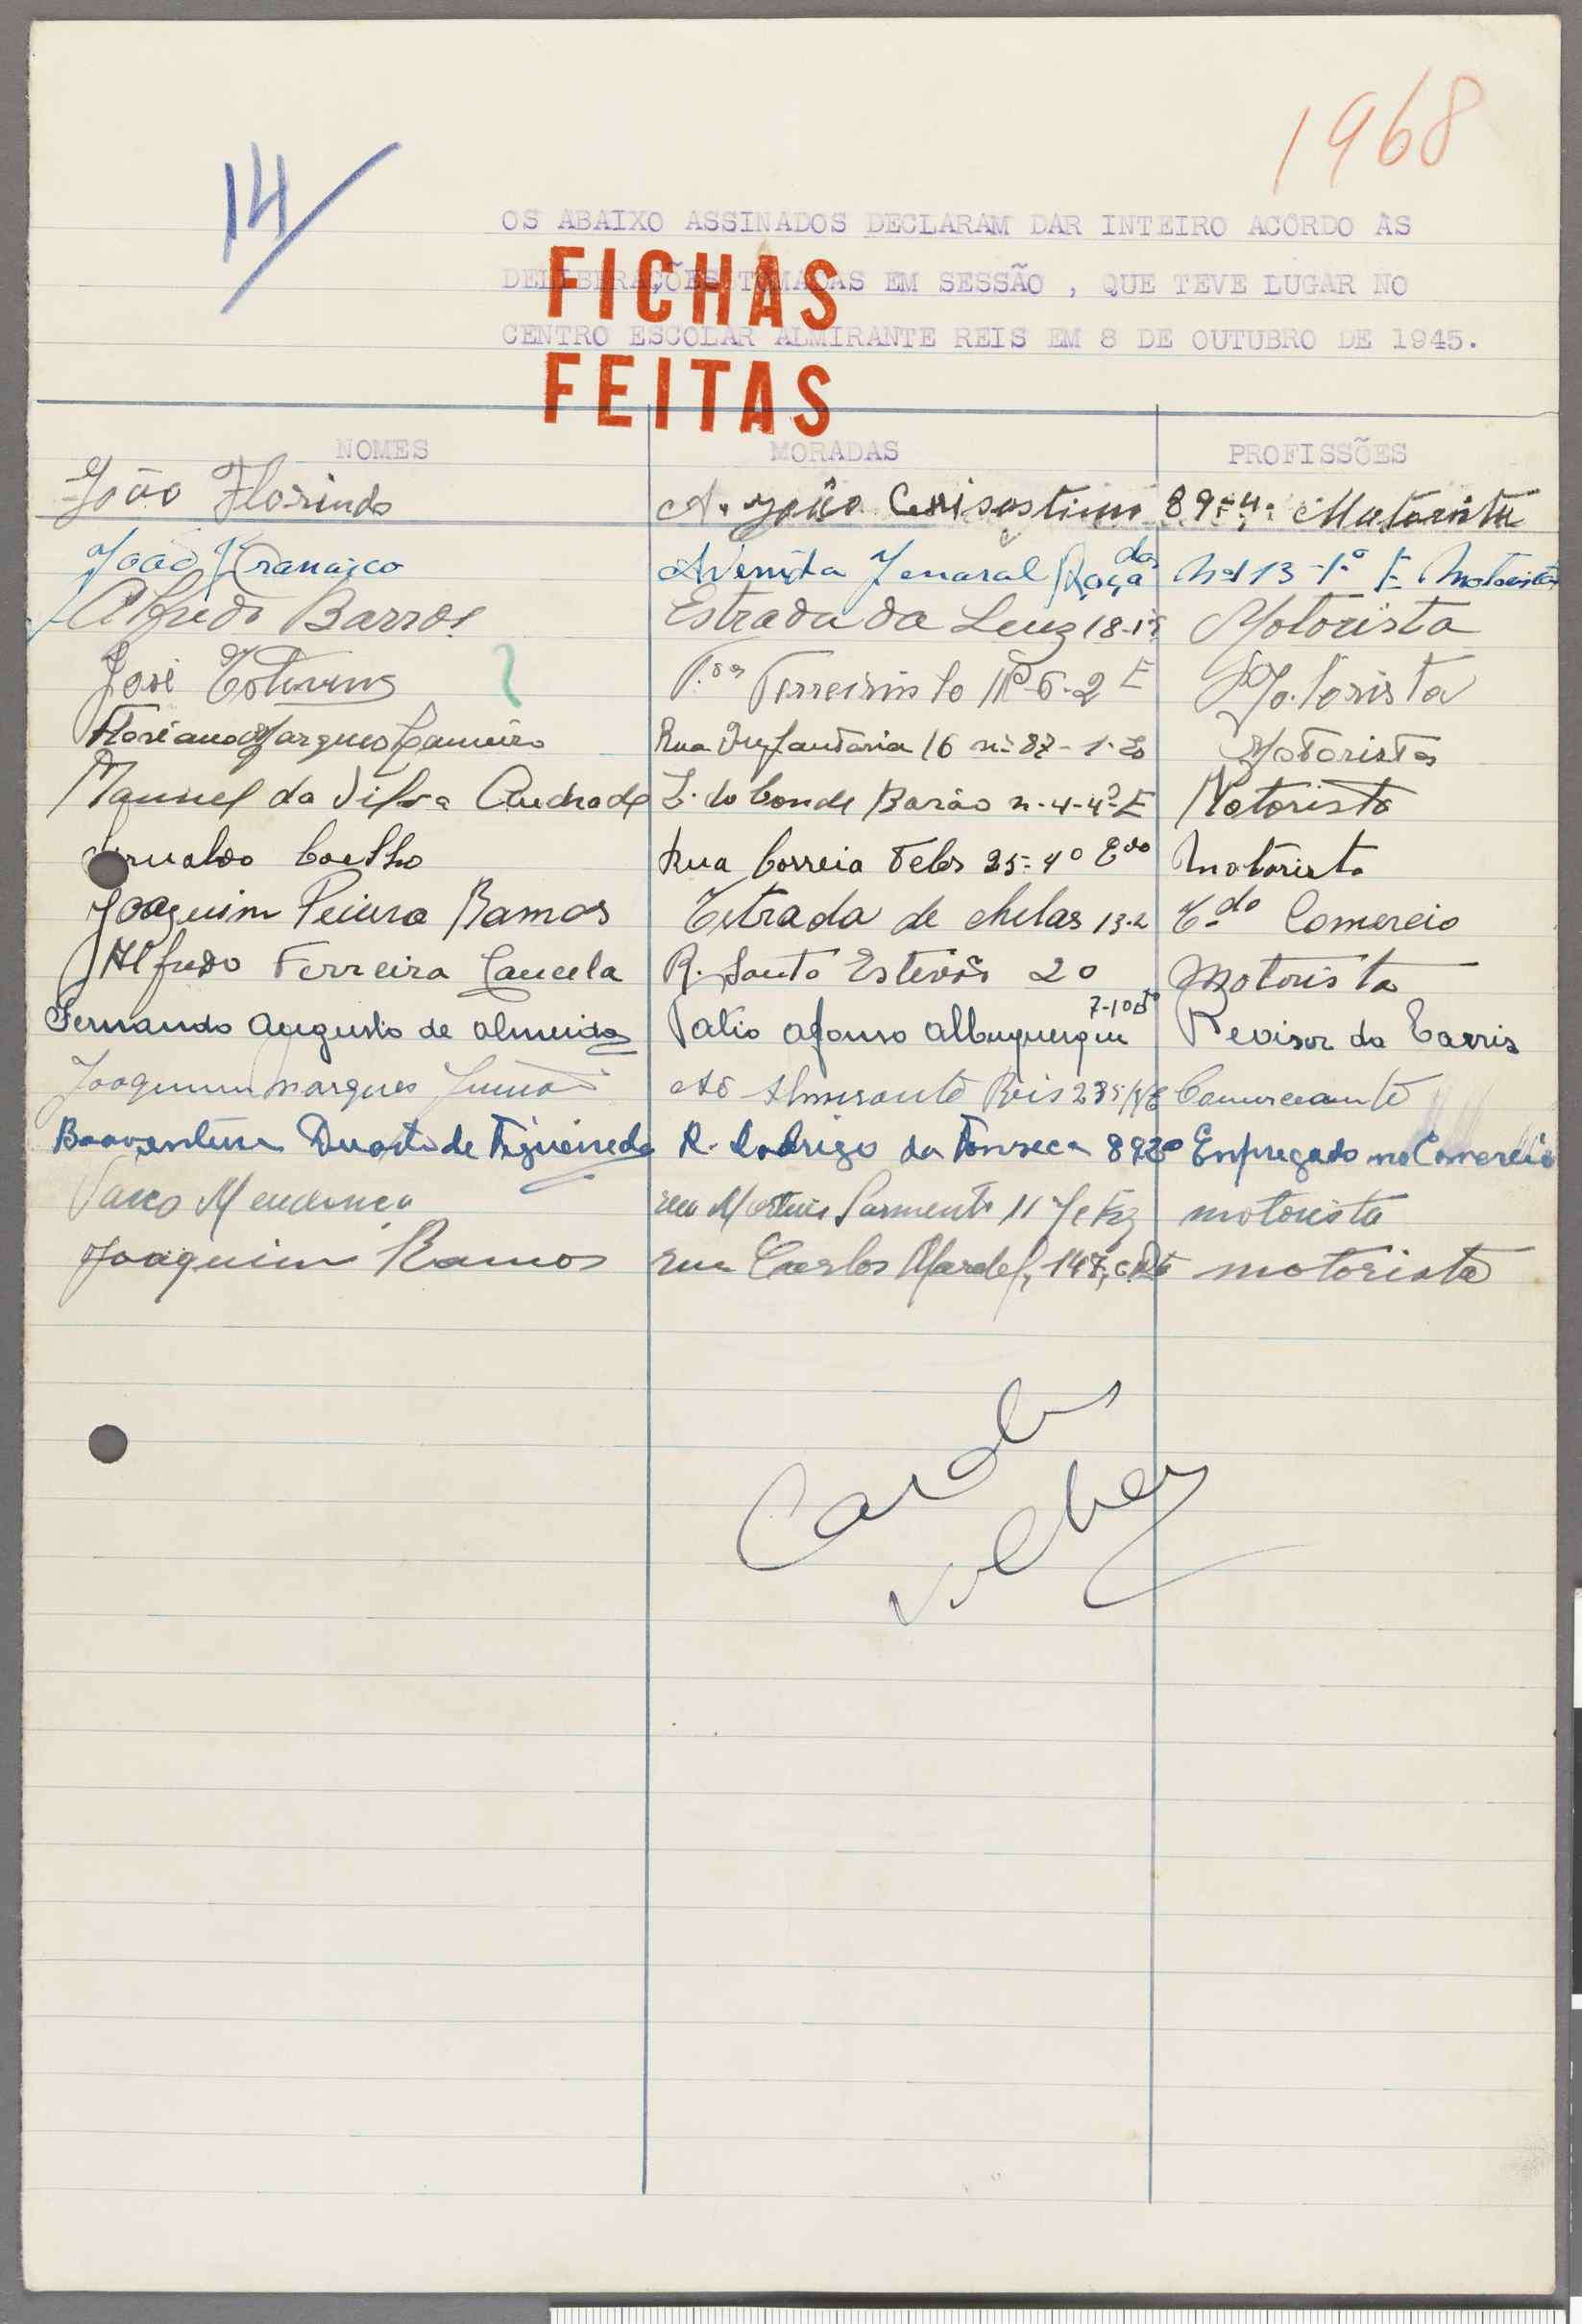 1968
14/
OS ABAIXO ASSINADOS DECLARAM DAR INTEIRO ACÔRDO ÀS
DELIBERAÇÕES TOMADAS EM SESSÃO , QUE TEVE LUGAR NO
CENTRO ESCOLAR ALMIRANTE REIS EM 8 DE OUTUBRO DE 1945.
FICHAS
FEITAS
NOMES MORADAS PROFISSÕES
João Florindo A. João Crisostimo 89-4º Motorista
João Avenida Jenaral Roçadas Motorista
Alfredo Barros Estrada da Luz Motorista
José Nº 6-2 E Motorista
Floriano Marques Rua Infantaria 16 nº 87-1-Eo Motorista
Manuel da Silva Andrade L. do Conde Barão n-4-4º-E Motorista
Coelho Rua Correia Teles 25-4º Edo Motorista
Joaquim Ramos Estrada de chelas 13-2 E.do Comercio
Alfredo Ferreira Cancela R. Santo Estevão 20 Motorista
Fernando Augusto de Almeida Patio Afonso Albuquerque Revisor da Carris
Joaquim Marques Almirante Reis Comerciante
Boaventura Duarte de Figueiredo R. Rodrigo da Fonseca Empregado no Comercio
Vasco Mendonça rua Martins Sarmento 11 motorista
Joaquim Ramos rua Carlos Mardel, 147, motorista